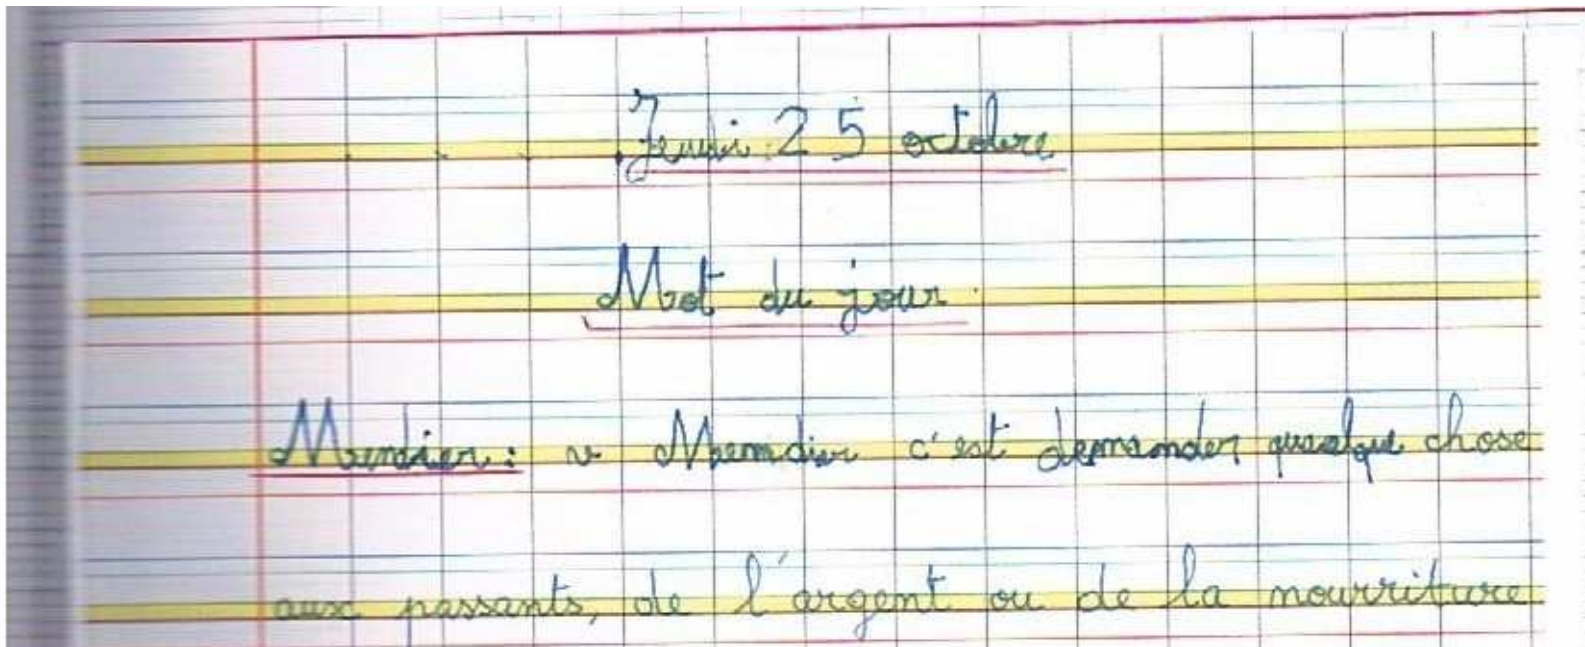 Jeudi 25 octobre
Mot du jour
Mendier : v Mendier c'est demander quelque chose
aux passants, de l'argent ou de la nourriture